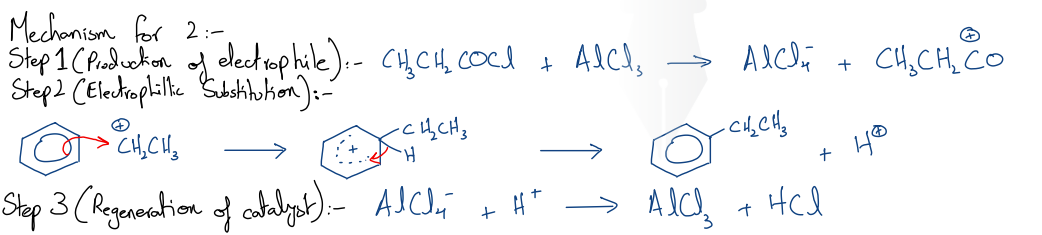 Mechanism for 2:-
Step 1 (Production of electrophile):- CH₃CH₂COCl + AlCl₃ → AlCl₄⁻ + CH₃CH₂C⊕O
Step 2 (Electrophillic Substitution):-
⊕CH₂CH₃ → + CH₂CH₃ H → CH₂CH₃ + H⊕
Step 3 (Regeneration of catalyst):- AlCl₄⁻ + H⁺ → AlCl₃ + HCl